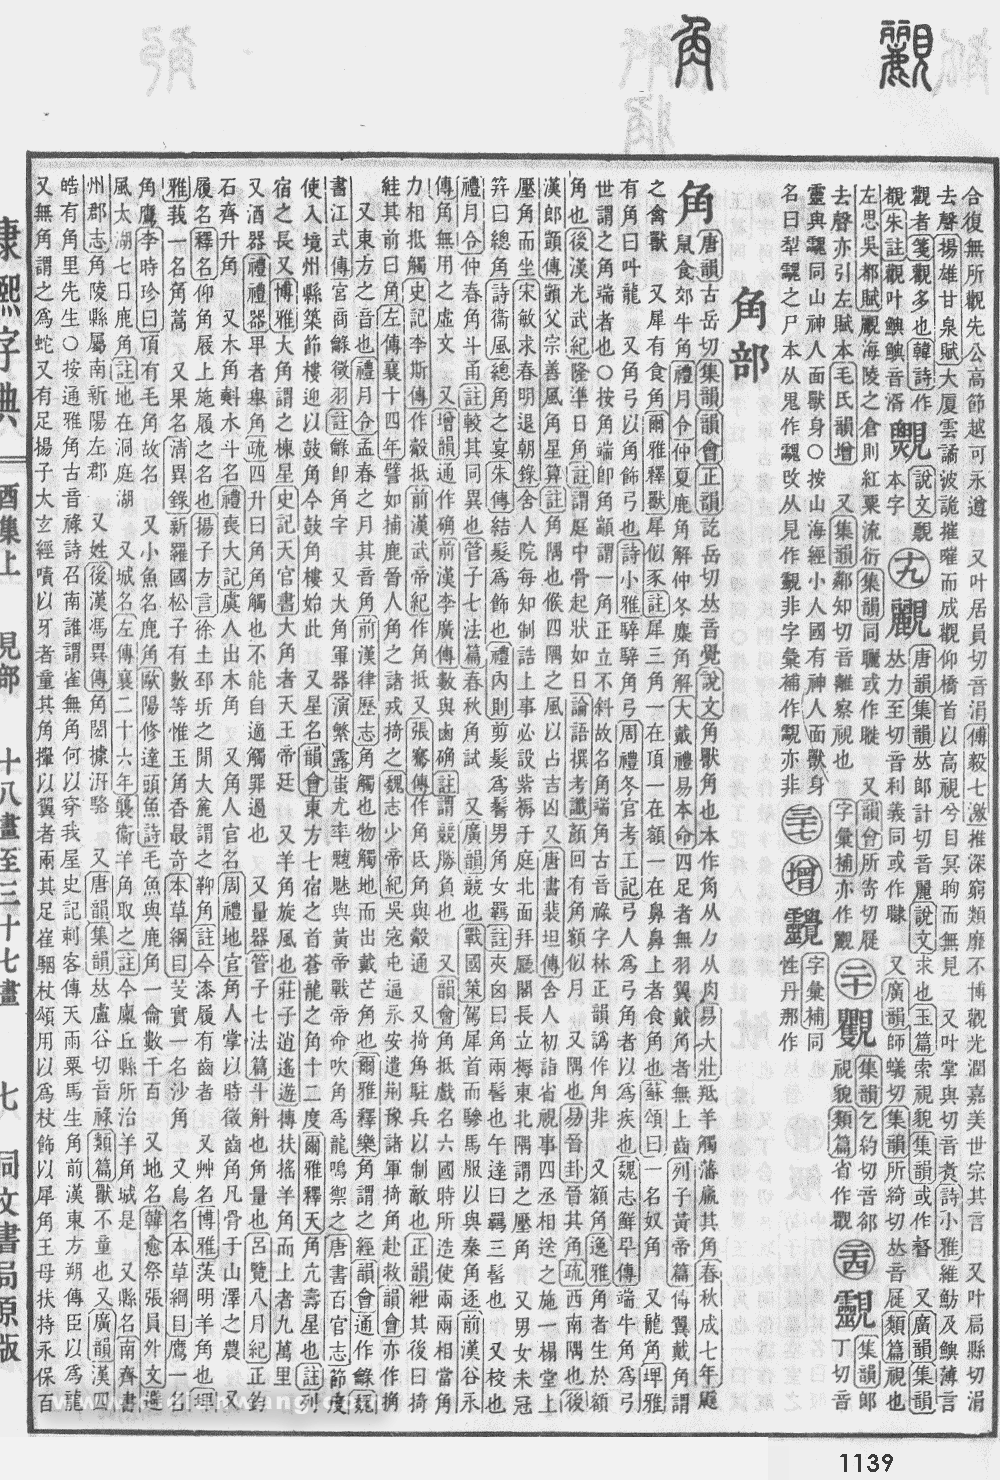 觀 角
合復無所觀先公高節越可永遵 又叶居員切音涓傅毅七激推深窮類靡不博觀光潤嘉美世宗其言 又叶局縣切涓
去聲揚雄甘泉賦大厦雲譎波詭摧嗺而成觀仰橋首以高視兮目冥眴而無見 又叶掌與切音煑詩小雅維魴及鱮薄言
觀者箋觀多也韓詩作
覩朱註觀叶鱮鱮音湑
本字
說文覾
十九
唐韻集韻𠀤郎計切音麗說文求也玉篇索視貌集韻或作𥌛 又廣韻集韻
𠀤力至切音利義同或作
又廣韻師蟻切集韻所綺切𠀤音屣類篇視也
左思吳都賦覼海陵之倉則紅粟流衍集韻同矖或作
又韻會所寄切屣
去聲亦引左賦本毛氏韻增 又集韻鄰知切音離察視也
字彙補亦作
二十
集韻乞約切音郤
視貌類篇省作觀
靈
集韻郞
切音
靈與䰱同山神人面獸身○按山海經小人國有神人面獸身
名曰犁䰱之尸本从鬼作䰱改从見作靈見非字彙補作亦非
三七
增
字彙補同
性丹那作
角部
角
唐韻古岳切集韻韻會正韻訖岳切𠀤音覺說文角獸角也本作从力从肉易大壯羝羊觸藩羸其角春秋成七年鼷
鼠食郊牛角禮月令仲夏鹿角解仲冬麋角解大戴禮易本命四足者無羽翼戴角者無上齒列子黃帝篇傅翼戴角謂
之禽獸 又犀有食角爾雅釋獸犀似豕註犀三角一在頂一在額一在鼻鼻上者食角也蘇頌曰一名奴角 又龍角埤雅
有角曰叫龍 又角弓以角飾弓也詩小雅騂騂角弓周禮冬官考工記弓人爲弓角者以爲疾也魏志鮮卑傳端牛角爲弓
世謂之角端者也○按角端卽角顓謂一角正立不斜故名角端角古音祿字林正韻譌作角非 又額角逸雅角者生於額
角也後漢光武紀隆準日角註謂庭中骨起狀如日論語撰考讖顏回有角額似月 又隅也易晉卦晉其角疏西南隅也後
漢郞顗傳顗父宗善風角星算註角隅也候四隅之風以占吉凶 又唐書裴坦傳舍人初詣省視事四丞相送之施一榻堂上
壓角而坐宋敏求春明退朝錄舍人院每知制誥上事必設紫褥于庭北面拜廳閣長立褥東北隅謂之壓角 又男女未冠
筓曰總角詩衞風總角之宴朱傳結髮爲飾也禮內則剪髮爲鬌男角女羈註夾囟曰角兩髻也午達曰羈三髻也 又校也
禮月令仲春角斗甬註較其同異也管子七法篇春秋角試 又廣韻競也戰國策駕犀首而驂馬服以與秦角逐前漢谷永
傳角無用之虛文 又增韻通作确前漢李廣傳數與鹵确註謂競勝負也 又韻會角抵戲名六國時所造使兩兩相當角
力相抵觸史記李斯傳作觳抵前漢武帝紀作角抵 又張騫傳作角氐角與觳通 又掎角駐兵以制敵也正韻紲其後曰掎
絓其前曰角左傳襄十四年譬如捕鹿晉人角之諸戎掎之魏志少帝紀吳寇屯逼永安遣荆豫諸軍掎角赴救韻會亦作捔
又東方之音也禮月令孟春之月其音角前漢律歷志角觸也物觸地而出戴芒角也爾雅釋樂角謂之經韻會通作龣魏
書江式傳宮商龣徵羽註龣卽角字 又大角軍器演繁露蚩尤率魑魅與黃帝戰帝命吹角爲龍鳴禦之唐書百官志節度
使入境州縣築節樓迎以鼓角今鼓角樓始此 又星名韻會東方七宿之首蒼龍之角十二度爾雅釋天角亢壽星也註列
宿之長又博雅大角謂之棟星史記天官書大角者天王帝廷 又羊角旋風也莊子逍遙遊摶扶搖羊角而上者九萬里
又酒器禮禮器𤰞者舉角疏四升曰角角觸也不能自適觸罪過也 又量器管子七法篇斗斛也角量也呂覽八月紀正鈞
石齊升角 又木角㪺木斗名禮喪大記虞人出木角 又角人官名周禮地官角人掌以時徵齒角凡骨于山澤之農 又
履名釋名仰角屐上施履之名也揚子方言徐土邳圻之閒大麤謂之靸角註今漆履有齒者 又艸名博雅䓖明羊角也埤
雅莪一名角蒿 又果名淸異錄新羅國松子有數等惟玉角香最奇本草綱目芰實一名沙角 又鳥名本草綱目鷹一名
角鷹李時珍曰頂有毛角故名 又小魚名鹿角歐陽修達頭魚詩毛魚與鹿角一龠數千百 又地名韓愈祭張員外文避
風太湖七日鹿角註地在洞庭湖 又城名左傳襄二十六年襲衞羊角取之註今廩丘縣所治羊角城是 又縣名南齊書
州郡志角陵縣屬南新陽左郡 又姓後漢馮異傳角閎據汧駱 又唐韻集韻𠀤盧谷切音祿類篇獸不童也又廣韻漢四
皓有角里先生○按通雅角古音祿詩召南誰謂雀無角何以穿我屋史記刺客傳天雨粟馬生角前漢東方朔傳臣以爲龍
又無角謂之爲蛇又有足揚子太玄經嘖以牙者童其角𢸁以翼者兩其足崔駰杖頌用以爲杖飾以犀角王母扶持永保百
康熙字典 酉集上 見部 十八畫至三十七畫 七 同文書局原版
1139